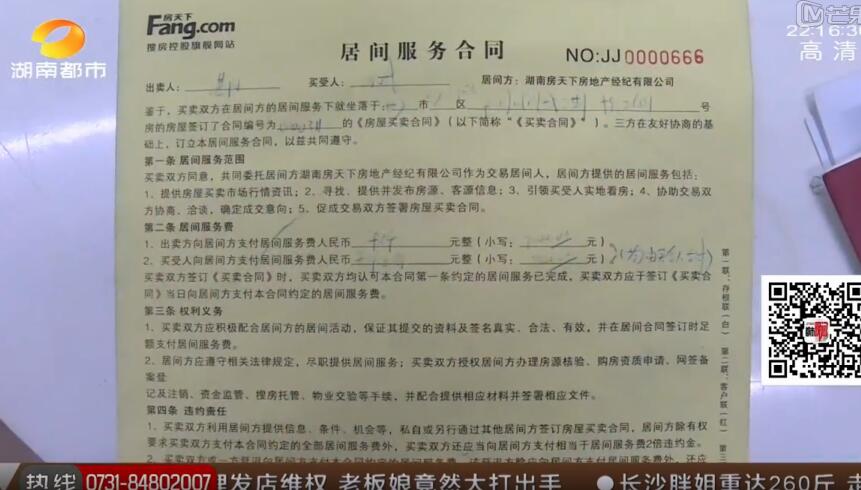 房天下
Fang.com
搜房控股旗舰网站
湖南都市
芒果
22:16:30
高清
居间服务合同
NO:JJ 0000666
出卖人：
买受人：
居间方：湖南房天下房地产经纪有限公司
鉴于，买卖双方在居间方的居间服务下就坐落于： 市 区 号
房的房屋签订了合同编号为 的《房屋买卖合同》（以下简称“《买卖合同》）。三方在友好协商的基
础上，订立本居间服务合同，以兹共同遵守。
第一条 居间服务范围
买卖双方同意，共同委托居间方湖南房天下房地产经纪有限公司作为交易居间人，居间方提供的居间服务包括：
1、提供房屋买卖市场行情资讯；2、寻找、提供并发布房源、客源信息；3、引领买受人实地看房；4、协助交易双
方协商、洽谈，确定成交意向；5、促成交易双方签署房屋买卖合同。
第二条 居间服务费
1、出卖方向居间方支付居间服务费人民币 元整（小写： 元）
2、买受人向居间方支付居间服务费人民币 元整（小写： 元）
买卖双方签订《买卖合同》时，买卖双方均认可本合同第一条约定的居间服务已完成，买卖双方应于签订《买卖合
同》当日向居间方支付本合同约定的居间服务费。
第三条 权利义务
1、买卖双方应积极配合居间方的居间活动，保证其提交的资料及签名真实、合法、有效，并在居间合同签订时足
额支付居间服务费。
2、居间方应遵守相关法律规定，尽职提供居间服务；买卖双方授权居间方办理房源核验、购房资质申请、网签备
案登
记及注销、资金监管、搜房托管、物业交验等手续，并配合提供相应材料并签署相应文件。
第四条 违约责任
1、买卖双方利用居间方提供信息、条件、机会等，私自或另行通过其他居间方签订房屋买卖合同，居间方除有权
要求买卖双方支付本合同约定的全部居间服务费外，买卖双方还应当向居间方支付相当于居间服务费2倍违约金。
第一联：存根联（白）
第二联：客户联（红）
第三
热线 0731-84802007
理发店维权 老板娘竟然大打出手
●长沙胖姐重达260斤